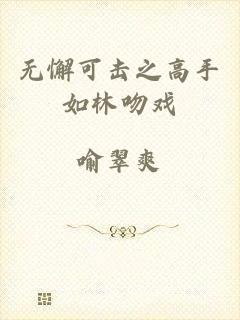 无懈可击之高手
如林吻戏
喻翠爽